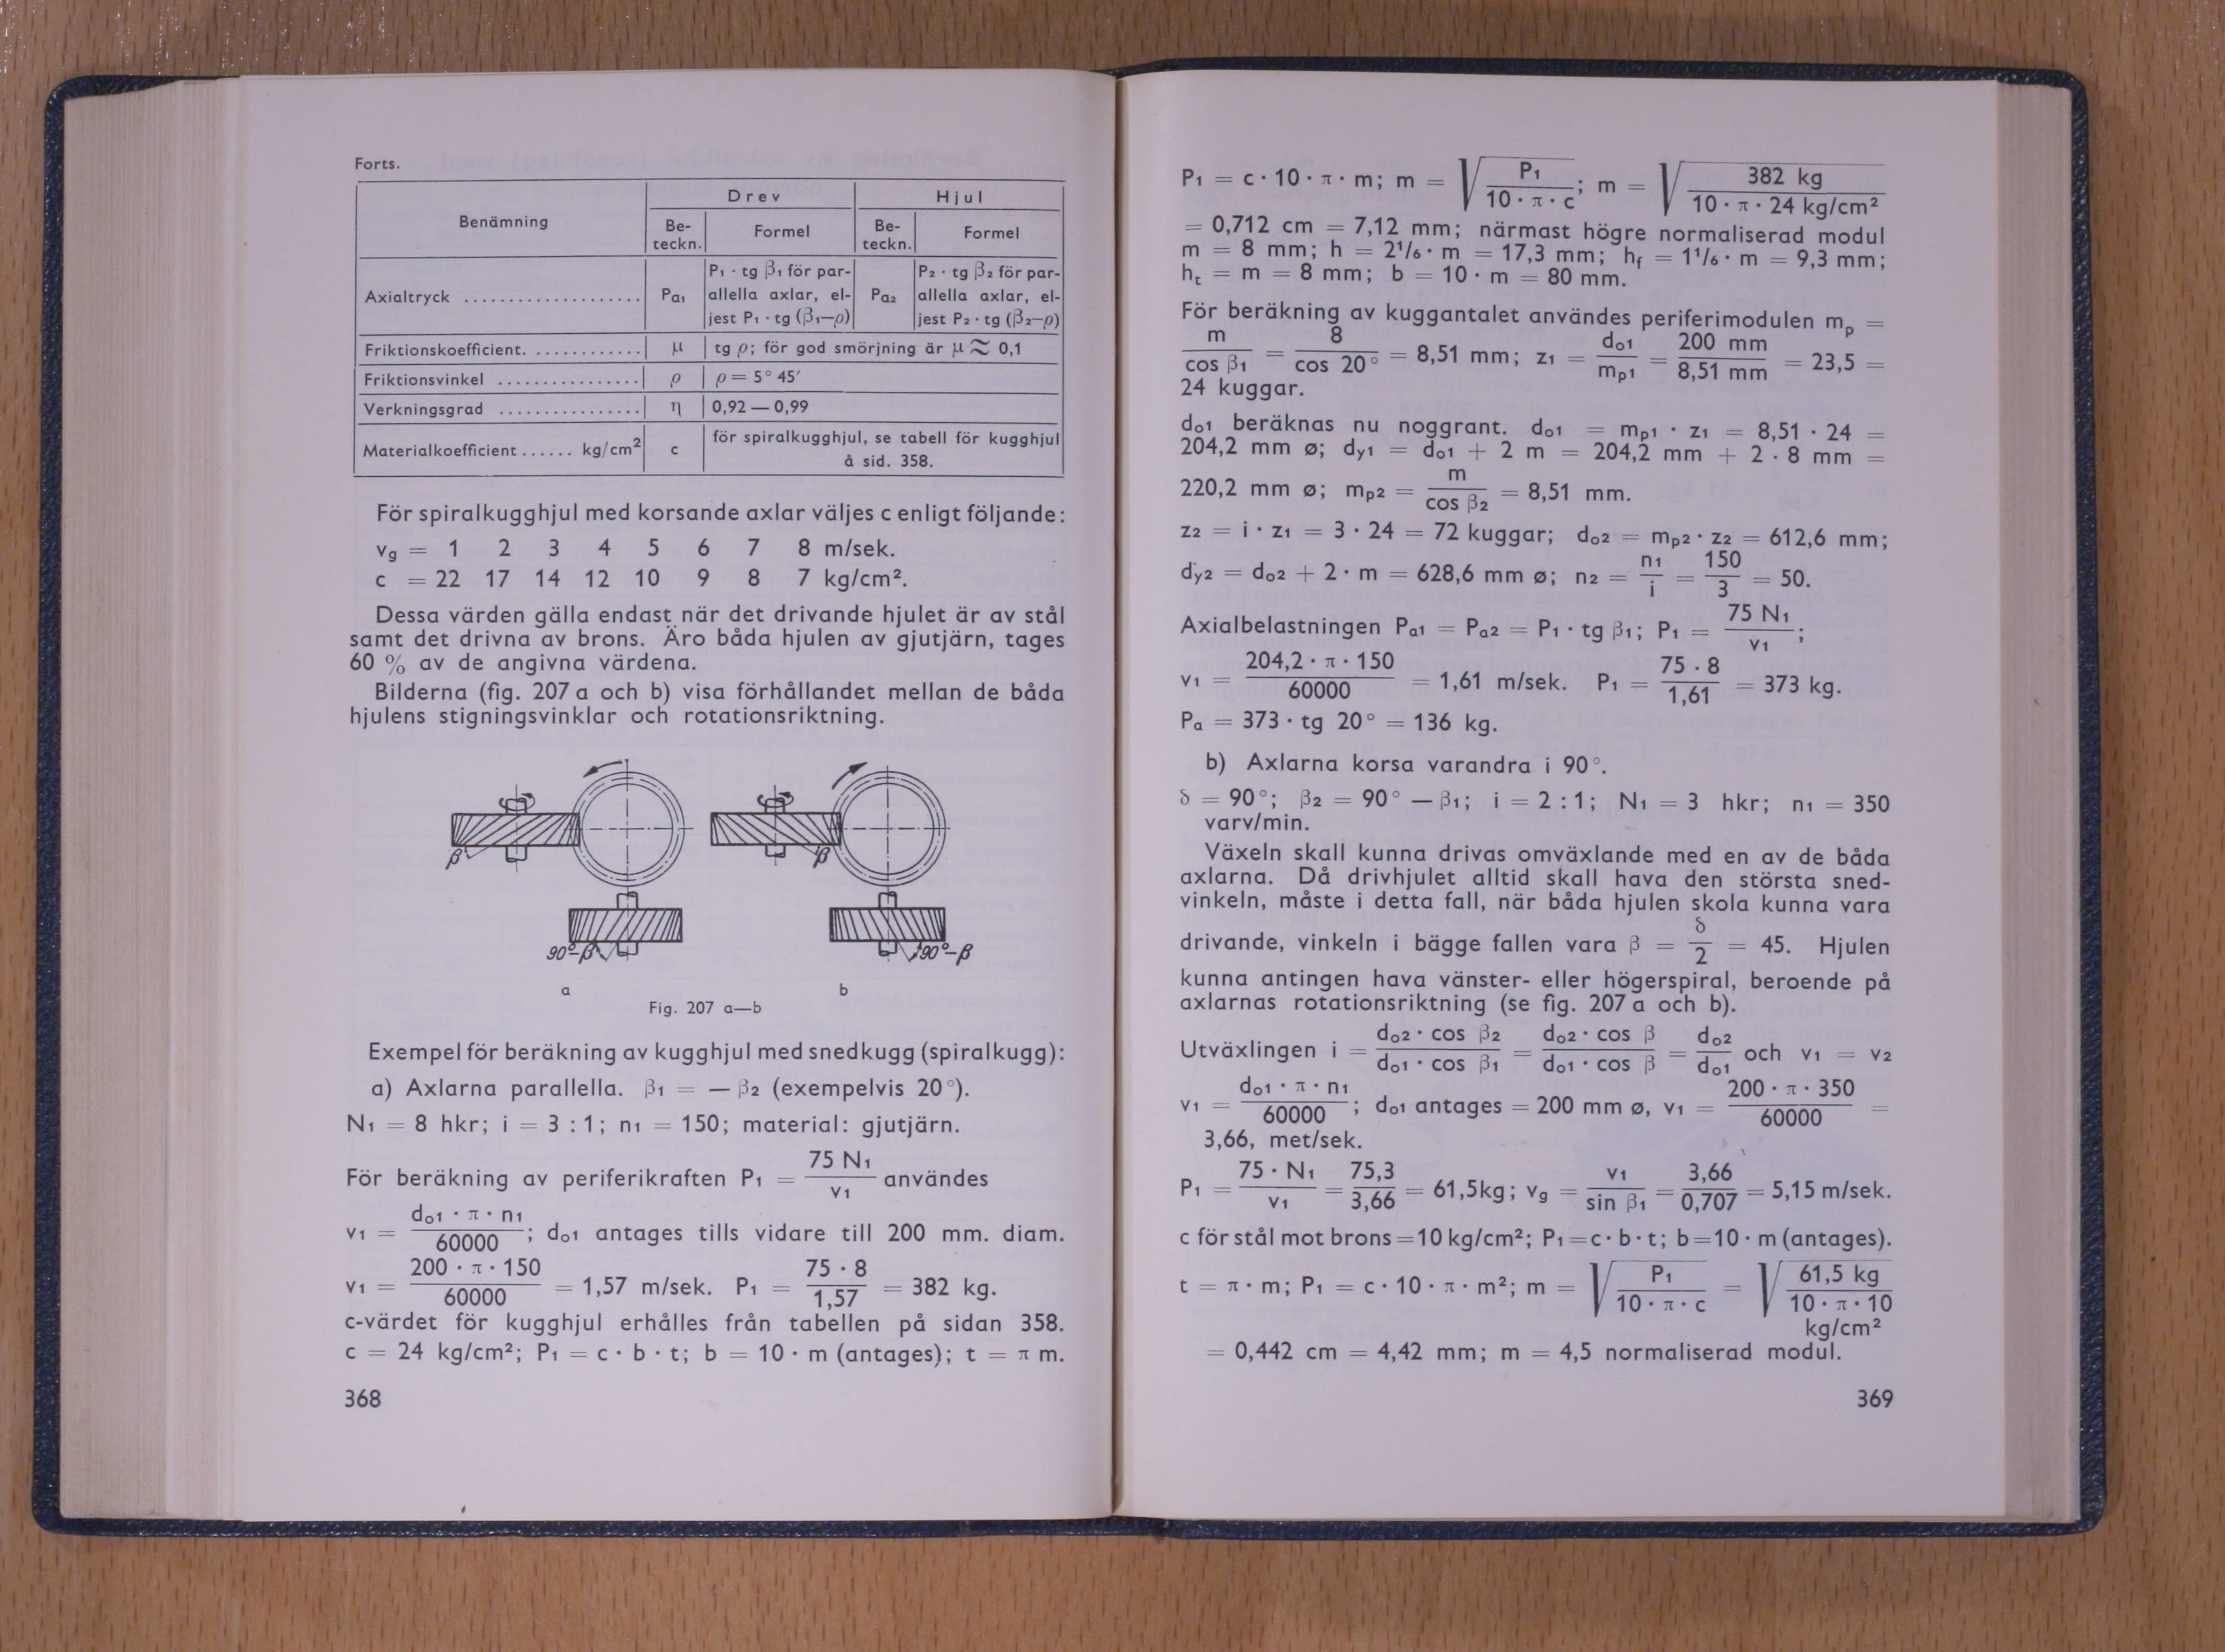 Forts.
Benämning
Drev
Hjul
Be-
teckn.
Formel
Be-
teckn.
Formel
Axialtryck ....................
Pa1
P1 · tg β1 för par-
allella axlar, el-
jest P1 · tg (β1—ρ)
Pa2
P2 · tg β2 för par-
allella axlar, el-
jest P2 · tg (β2—ρ)
Friktionskoefficient. ............ μ tg ρ; för god smörjning är μ ≈ 0,1
Friktionsvinkel ................ ρ ρ = 5° 45′
Verkningsgrad ................ η 0,92 — 0,99
Materialkoefficient ...... kg/cm² c för spiralkugghjul, se tabell för kugghjul
å sid. 358.
För spiralkugghjul med korsande axlar väljes c enligt följande:
vg = 1 2 3 4 5 6 7 8 m/sek.
c = 22 17 14 12 10 9 8 7 kg/cm².
Dessa värden gälla endast när det drivande hjulet är av stål
samt det drivna av brons. Äro båda hjulen av gjutjärn, tages
60 % av de angivna värdena.
Bilderna (fig. 207 a och b) visa förhållandet mellan de båda
hjulens stigningsvinklar och rotationsriktning.
β
β
90°–β
90°–β
a
b
Fig. 207 a—b
Exempel för beräkning av kugghjul med snedkugg (spiralkugg):
a) Axlarna parallella. β1 = — β2 (exempelvis 20°).
N1 = 8 hkr; i = 3 : 1; n1 = 150; material: gjutjärn.
För beräkning av periferikraften P1 = 75 N1 / v1 användes
v1 = do1 · π · n1 / 60000 ; do1 antages tills vidare till 200 mm. diam.
v1 = 200 · π · 150 / 60000 = 1,57 m/sek. P1 = 75 · 8 / 1,57 = 382 kg.
c-värdet för kugghjul erhålles från tabellen på sidan 358.
c = 24 kg/cm²; P1 = c · b · t; b = 10 · m (antages); t = π m.
368
P1 = c · 10 · π · m; m = √ P1 / 10 · π · c ; m = √ 382 kg / 10 · π · 24 kg/cm²
= 0,712 cm = 7,12 mm; närmast högre normaliserad modul
m = 8 mm; h = 2¹/₆ · m = 17,3 mm; hf = 1¹/₆ · m = 9,3 mm;
ht = m = 8 mm; b = 10 · m = 80 mm.
För beräkning av kuggantalet användes periferimodulen mp =
m / cos β1 = 8 / cos 20° = 8,51 mm; z1 = do1 / mp1 = 200 mm / 8,51 mm = 23,5 =
24 kuggar.
do1 beräknas nu noggrant. do1 = mp1 · z1 = 8,51 · 24 =
204,2 mm ø; dy1 = do1 + 2 m = 204,2 mm + 2 · 8 mm =
220,2 mm ø; mp2 = m / cos β2 = 8,51 mm.
z2 = i · z1 = 3 · 24 = 72 kuggar; do2 = mp2 · z2 = 612,6 mm;
dy2 = do2 + 2 · m = 628,6 mm ø; n2 = n1 / i = 150 / 3 = 50.
Axialbelastningen Pa1 = Pa2 = P1 · tg β1; P1 = 75 N1 / v1 ;
v1 = 204,2 · π · 150 / 60000 = 1,61 m/sek. P1 = 75 · 8 / 1,61 = 373 kg.
Pa = 373 · tg 20° = 136 kg.
b) Axlarna korsa varandra i 90°.
δ = 90°; β2 = 90° — β1; i = 2 : 1; N1 = 3 hkr; n1 = 350
varv/min.
Växeln skall kunna drivas omväxlande med en av de båda
axlarna. Då drivhjulet alltid skall hava den största sned-
vinkeln, måste i detta fall, när båda hjulen skola kunna vara
drivande, vinkeln i bägge fallen vara β = δ / 2 = 45. Hjulen
kunna antingen hava vänster- eller högerspiral, beroende på
axlarnas rotationsriktning (se fig. 207 a och b).
Utväxlingen i = do2 · cos β2 / do1 · cos β1 = do2 · cos β / do1 · cos β = do2 / do1 och v1 = v2
v1 = do1 · π · n1 / 60000 ; do1 antages = 200 mm ø, v1 = 200 · π · 350 / 60000 =
3,66, met/sek.
P1 = 75 · N1 / v1 = 75,3 / 3,66 = 61,5kg; vg = v1 / sin β1 = 3,66 / 0,707 = 5,15 m/sek.
c för stål mot brons = 10 kg/cm²; P1 = c · b · t; b = 10 · m (antages).
t = π · m; P1 = c · 10 · π · m²; m = √ P1 / 10 · π · c = √ 61,5 kg / 10 · π · 10
kg/cm²
= 0,442 cm = 4,42 mm; m = 4,5 normaliserad modul.
369